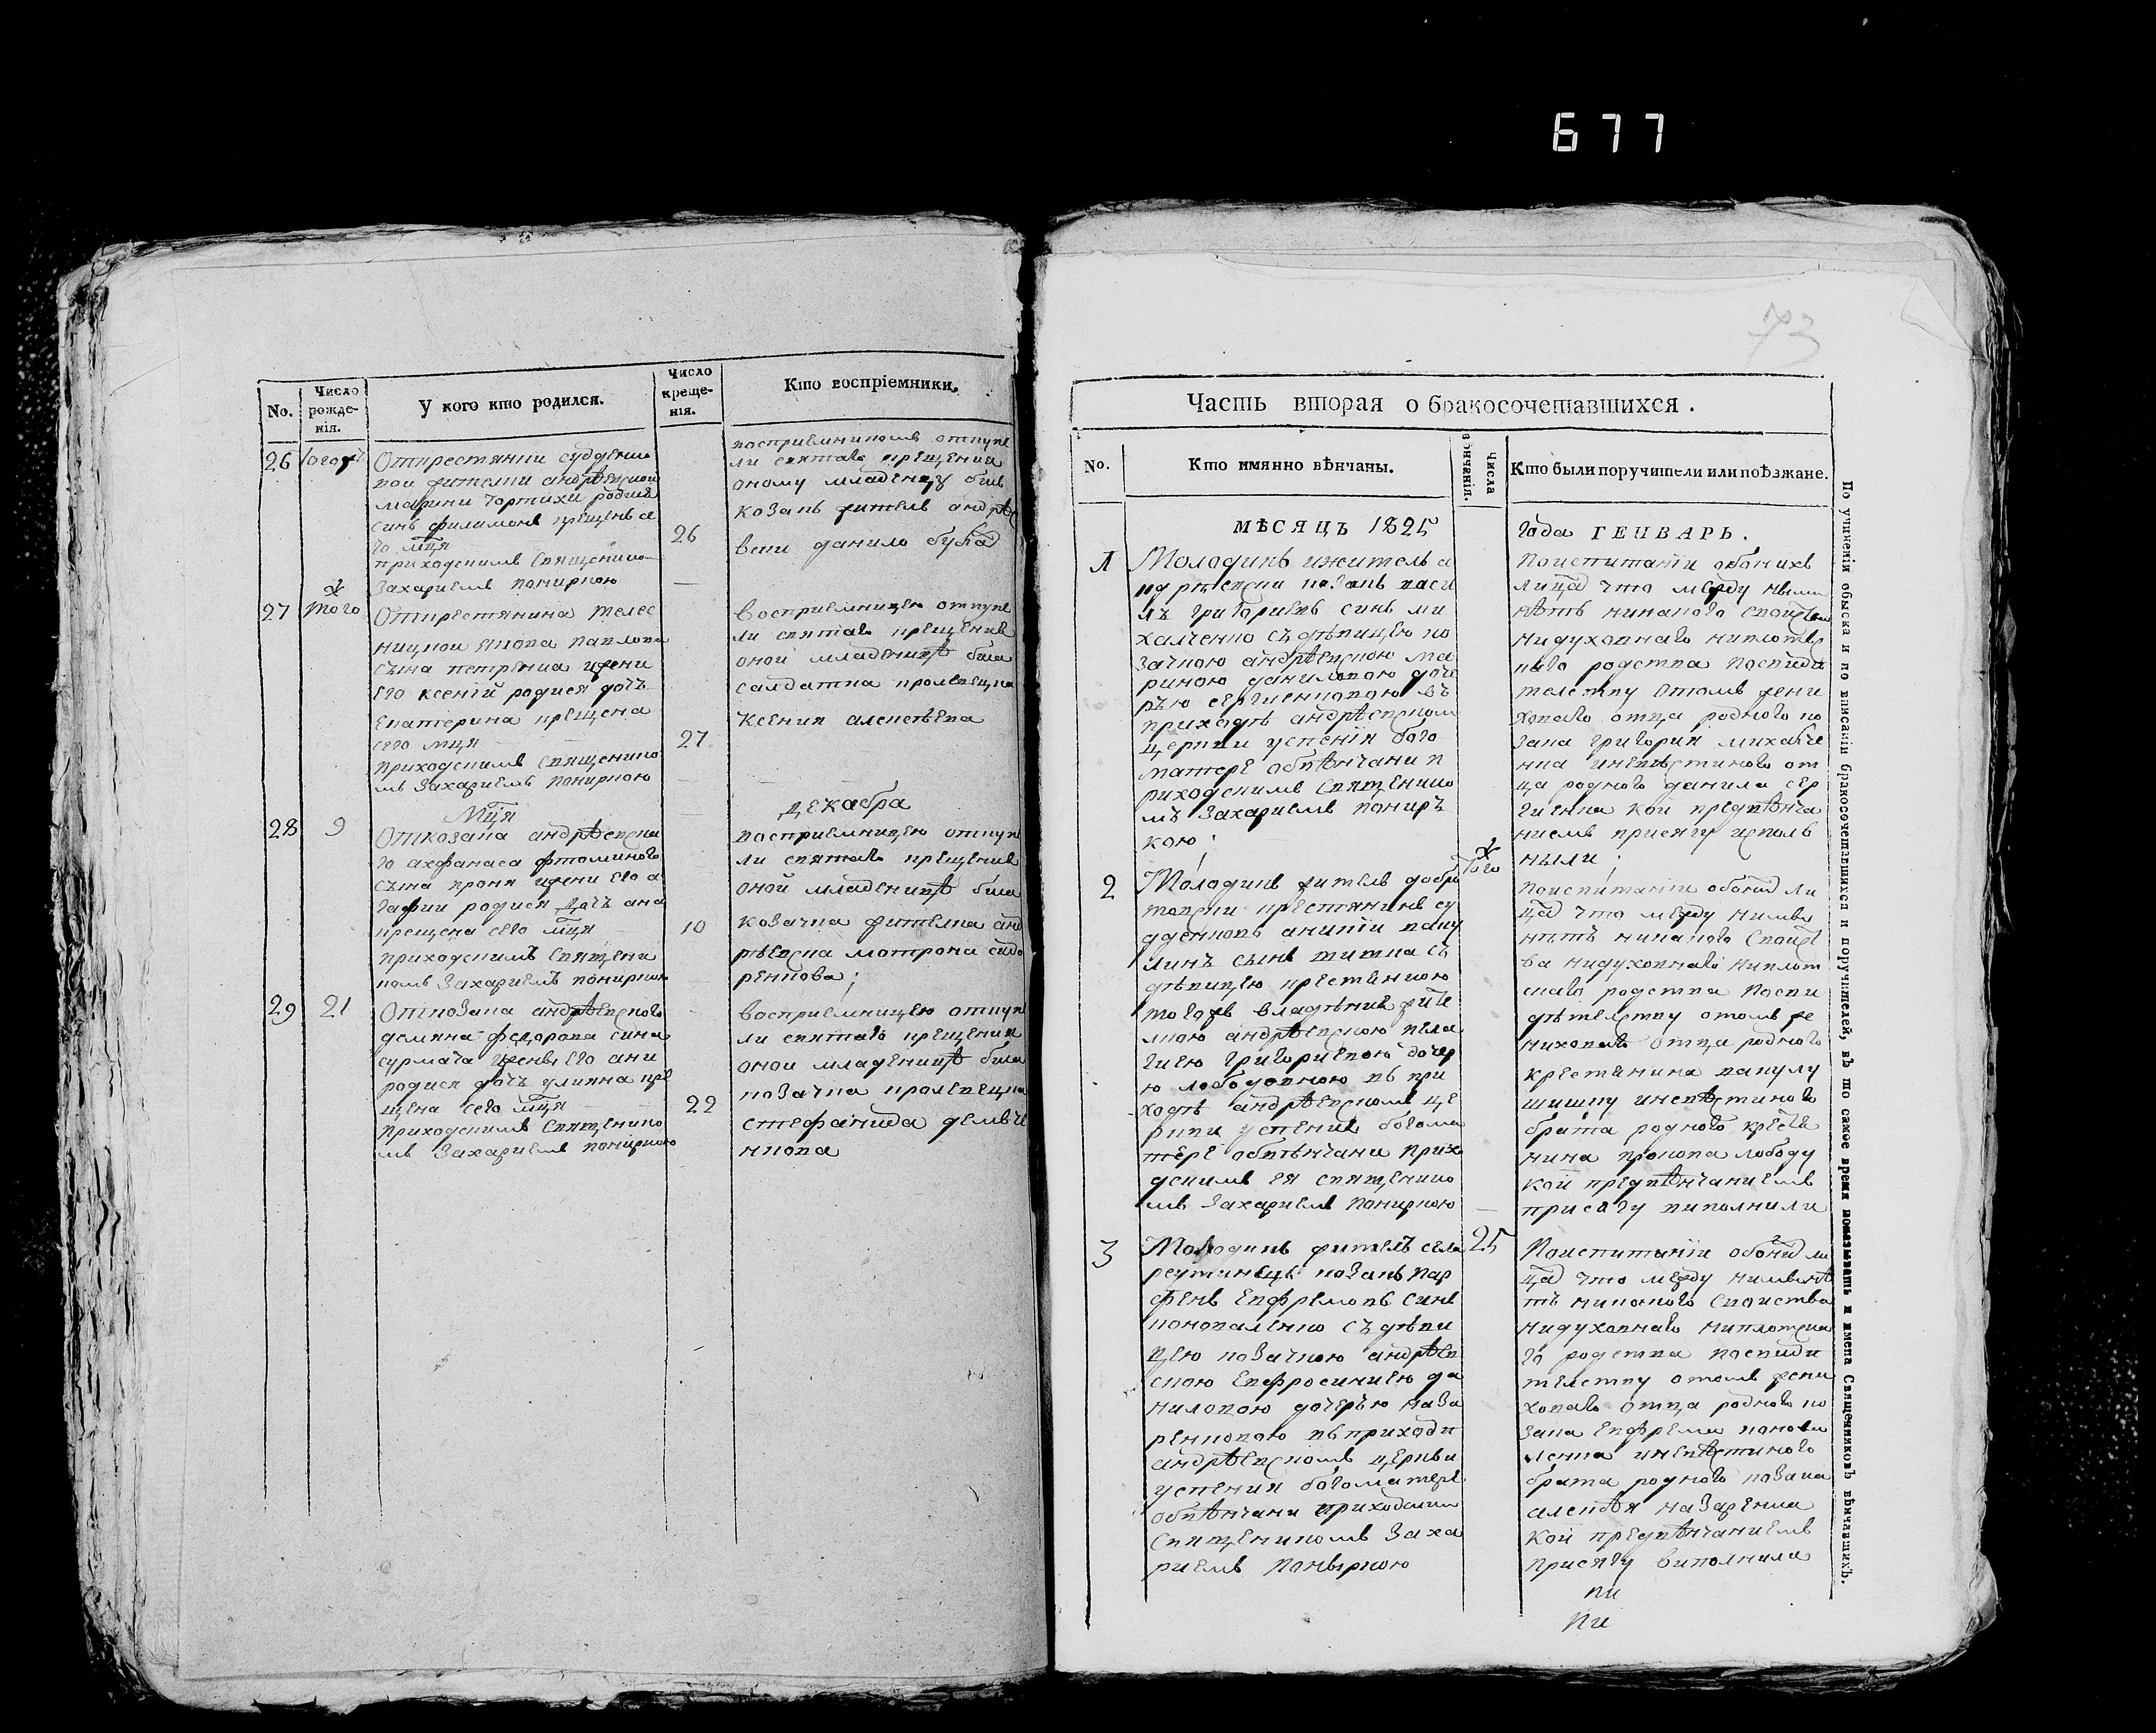 677
73
No.
Число рожде-нія.
У кого кто родился.
Число креще-нія.
Кто воспріемники.
26
Открестянки судденко
вои жителки андрѣевской
марини
синъ филимонъ крещенъ се
го мця
приходскимъ священико
Захариемъ пониркою
26
восприемникомъ откупе
ли святаго крещения
оному младенцу билъ
козакъ житель андрѣ
вски данило
27
того ж
Открестянина
якова павлова
сина петренка жени
его ксений родися дочъ
Екатерина крещена
сего мця
приходскимъ священико
мъ Захариемъ пониркою
27
восприемницею откупе
ли святаго крещения
оной младеницѣ била
салдатка
ксения алексѣева
Мця
декабра
28
9
Откозака андрѣевска
го ахфанаса
сина жени его а
гафии родися дочъ ана
крещена сего мця
приходскимъ священи
комъ Захариемъ пониркою
10
восприемницею откупе
ли святаго крещения
оной младеницѣ била
козачка жителка анд
рѣевска мотрона сидо
ренкова;
29
21
Откозака андрѣевского
демяна федорова сина
сурмача жены его ани
родися дочъ улияна кре
щена сего мця
приходскимъ священико
мъ Захариемъ пониркою
22
восприемницею откупе
ли святаго крещения
оной младеницѣ била
козачка
стефанида демьче
нкова
Часть вторая о бракосочетавшихся.
No.
Кто имянно вѣнчаны.
Числа вѣнчанія.
Кто были поручители или поѣзжане.
мѣсяцъ 1825
года ГЕНВАРЬ.
1
Молодикъ житель а
ндрѣевски козакъ васи
лъ григориевъ синъ ми
халченко съ дѣвицею ко
зачкою андрѣевскою ма
риною даниловою доче
рью сергиенковою въ
приходѣ андрѣевском
церкви успенія бого
матере обвѣнчани п
риходскимъ священико
мъ Захариемъ понирь
кою;
Поиспитаніи обоихъ
лицъ что между ными
нѣтъ никакого своиства
нидуховнаго ниплотск
наго родства посвиди
телству отомъ жени
ховаго отца родного ко
зака григория михалче
нка иневѣстиного от
ца родного данила сер
гиенка кои предвѣнча
ниемъ присягу исполъ
ныли;
2
того ж
Молодикъ житель добро
товски крестянинъ су
дденковъ
синъ титка съ
дѣвицею крестянкою
тогожъ владѣния жите
лкою андрѣевскою пела
гиею григориевою дочер
ю лободовною въ при
ходѣ андрѣевскомъ це
ркви успения богома
тере обвѣнчани прихо
дскимъ ея священико
мъ Захариемъ пониркою
Поиспитаніи обоихъ ли
цъ что между нимы
нѣтъ никакого своист
ва нидуховнаго ниплот
скаго родства посви
дѣтелству отомъ же
ниховаго отца родного
крестянина вакулу
шишку иневѣстиного
брата родного крестя
нина прокопа лободу
кои предвѣнчаниемъ
присягу виполнили
3
25
Молодикъ житель села
реутинецъ козакъ пар
фенъ Евфремовъ синъ
коноваленко съ дѣви
цею козачкою андрѣев
скою Евфросиниею да
ниловою дочерью наза
ренковою въ приходи
андрѣевскомъ церкви
успения богоматере
обвѣнчани приходским
священикомъ Заха
риемъ поныркою
Поиспитаніи обоихъ ли
цъ что между нимы нѣ
тъ никакого своиства
нидуховнаго ниплотска
го родства посвиди
телству отомъ жени
ховаго отца родного ко
зака Евфрема конова
ленка иневѣстиного
брата родного козака
алексѣя назаренка
кои предвѣнчаниемъ
присягу виполнила
ли
ли
По учиненіи обыска и по вписаніи бракосочетавшихся и поручителей, въ то самое время показывать и имена Священниковъ вѣнчавшихъ.